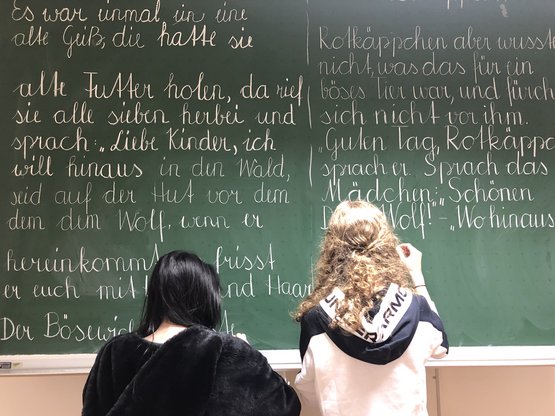 Es war einmal ein eine
alte Geiß, die hatte sie
alte Futter holen, da rief
sie alle sieben herbei und
sprach: „Liebe Kinder, ich
will hinaus in den Wald,
seid auf der Hut vor dem
dem dem Wolf, wenn er
hereinkommt frisst
er euch mit und Haar
Der Bösewic
Rotkäppchen aber wusste
nicht, was das für ein
böses Tier war, und fürch
sich nicht vor ihm.
„Guten Tag, Rotkäppc
sprach er. Sprach das
Mädchen: „Schönen
Wolf!" - „Wo hinaus